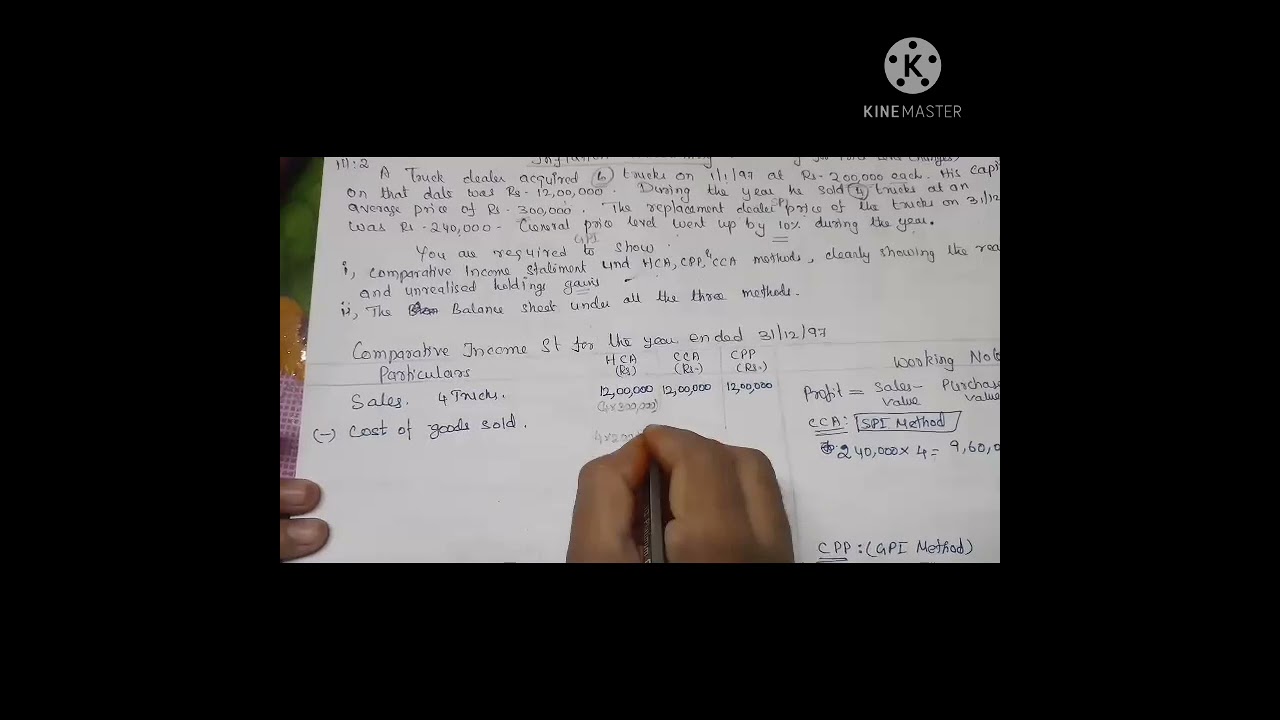 KINEMASTER
Ill:2
A Truck dealer acquired 6 trucks on 1/1/97 at Rs- 200,000 each. His capi
on that date was Rs- 12,00,000. During the year he sold 4 trucks at an
average price of Rs- 300,000. The replacement dealer price of the trucks on 31/12
SPI
was Rs- 240,000- General price level went up by 10% during the year.
GPI
You are required to show
i, Comparative Income statement und HCA, CPP, & CCA methods, clearly showing the rea
and unrealised holdings gains
ii, The Balance sheet under all the three methods.
Comparative Income St for the year ended 31/12/97
Particulars HCA (Rs) CCA (Rs-) CPP (Rs.) Working No
Sales. 4 Trucks. 12,00,000 12,00,000 12,00,000 Profit = Sales- value Purchase value
(4x300,000)
(-) Cost of goods sold. CCA: SPI Method
4x200
240,000 x 4 = 9,60,0
CPP: (GPI Method)